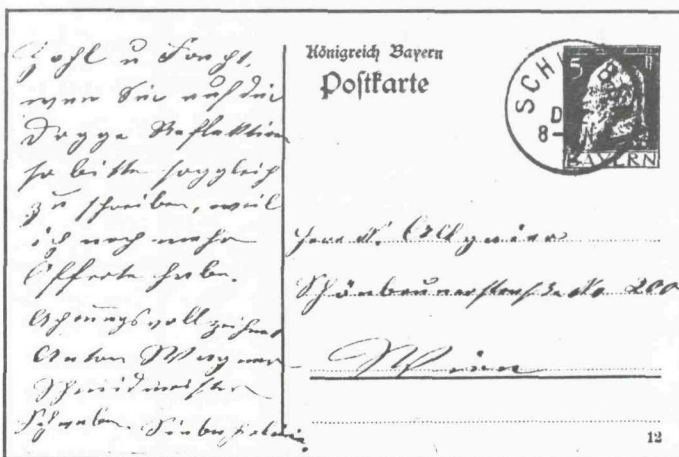 Zahl u Fracht,
wen Sie auf die
Dogge Reflektiren
so bitte sogleich
zu schreiben, weil
ich noch mehr
Offerte habe.
Achtungsvoll zeichnet
Anton Wagner
Schmidmeister
Schwaben.
Königreich Bayern
Postkarte
SCH
D
8-
N
5
BAYERN
Herr N. Allgaier
Schönbrunerstraße No 200
Wien
12